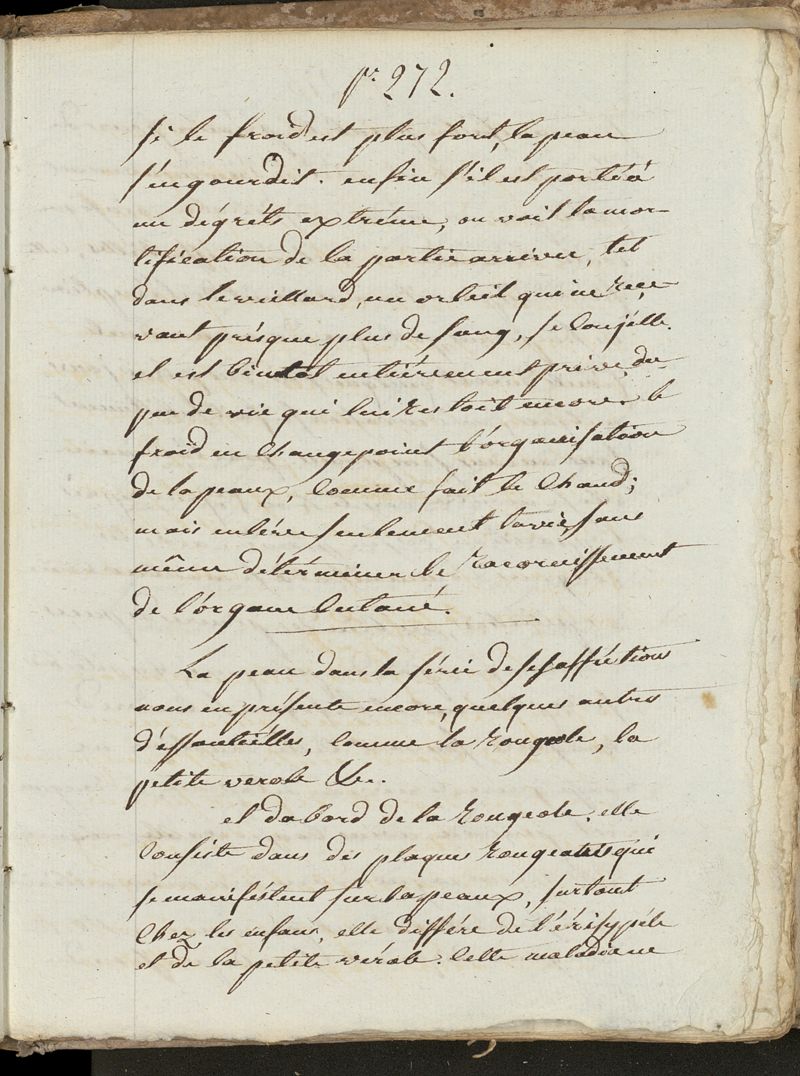 pr. 272.
si le froid est plus fort, la peau
s'engourdit. enfin s'il est porté à
un dégréts extrême, on voit la mor-
tification de la partie arriver, tel
dans le vieillard, un orteil qui ne rece-
vant présque plus de sang, se congéle.
et est bientôt entiérement privé du
peu de vie qui lui restoit encore. le
froid ne change point l'organisation
de la peaux, comme fait le chaud;
mais enléve seulement la vie, sans
même détérminer le racornissement
de l'organe cutané.
La peau dans la série de ses afféctions
nous en présente encore, quelques autres
d'éssentiélles, comme la rougeole, la
petite verole &c.
et dabord de la rougeole. elle
consiste dans des plaques rougeatres qui
se manifestent sur la peaux, surtout
chez les enfans, elle différe de l'érisypéle
et de la petite vérole. Cette maladie ne